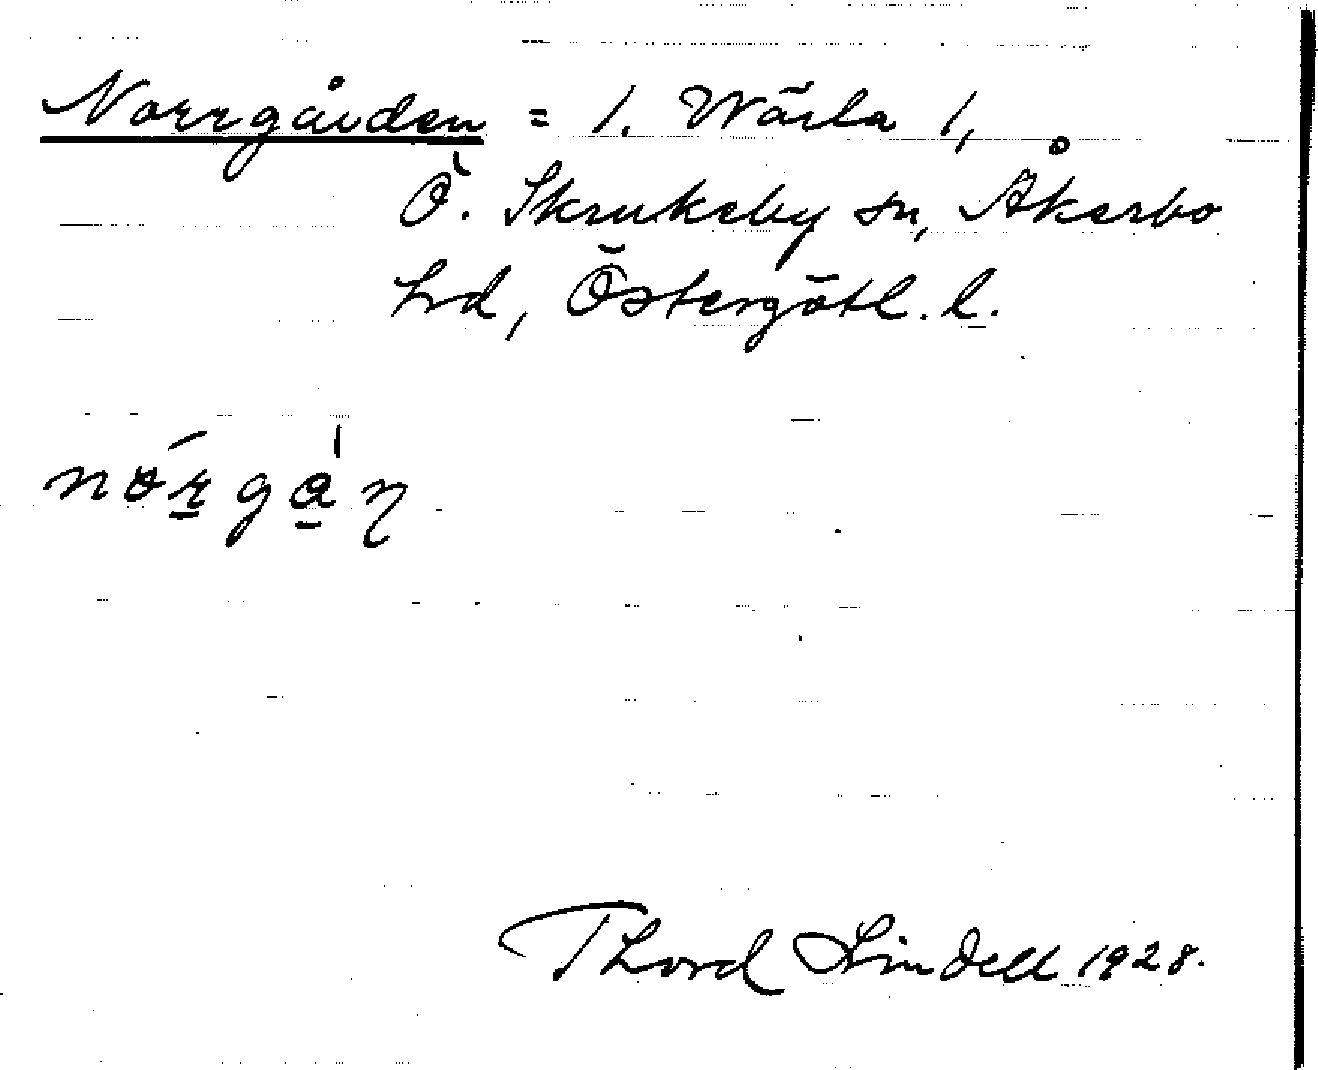 Norrgården = 1. Wärla 1,
Ö. Skrukeby sn, Åkerbo
hd, Östergötl. l.
nórga̠̍ɳ
Thord Lindell 1928.